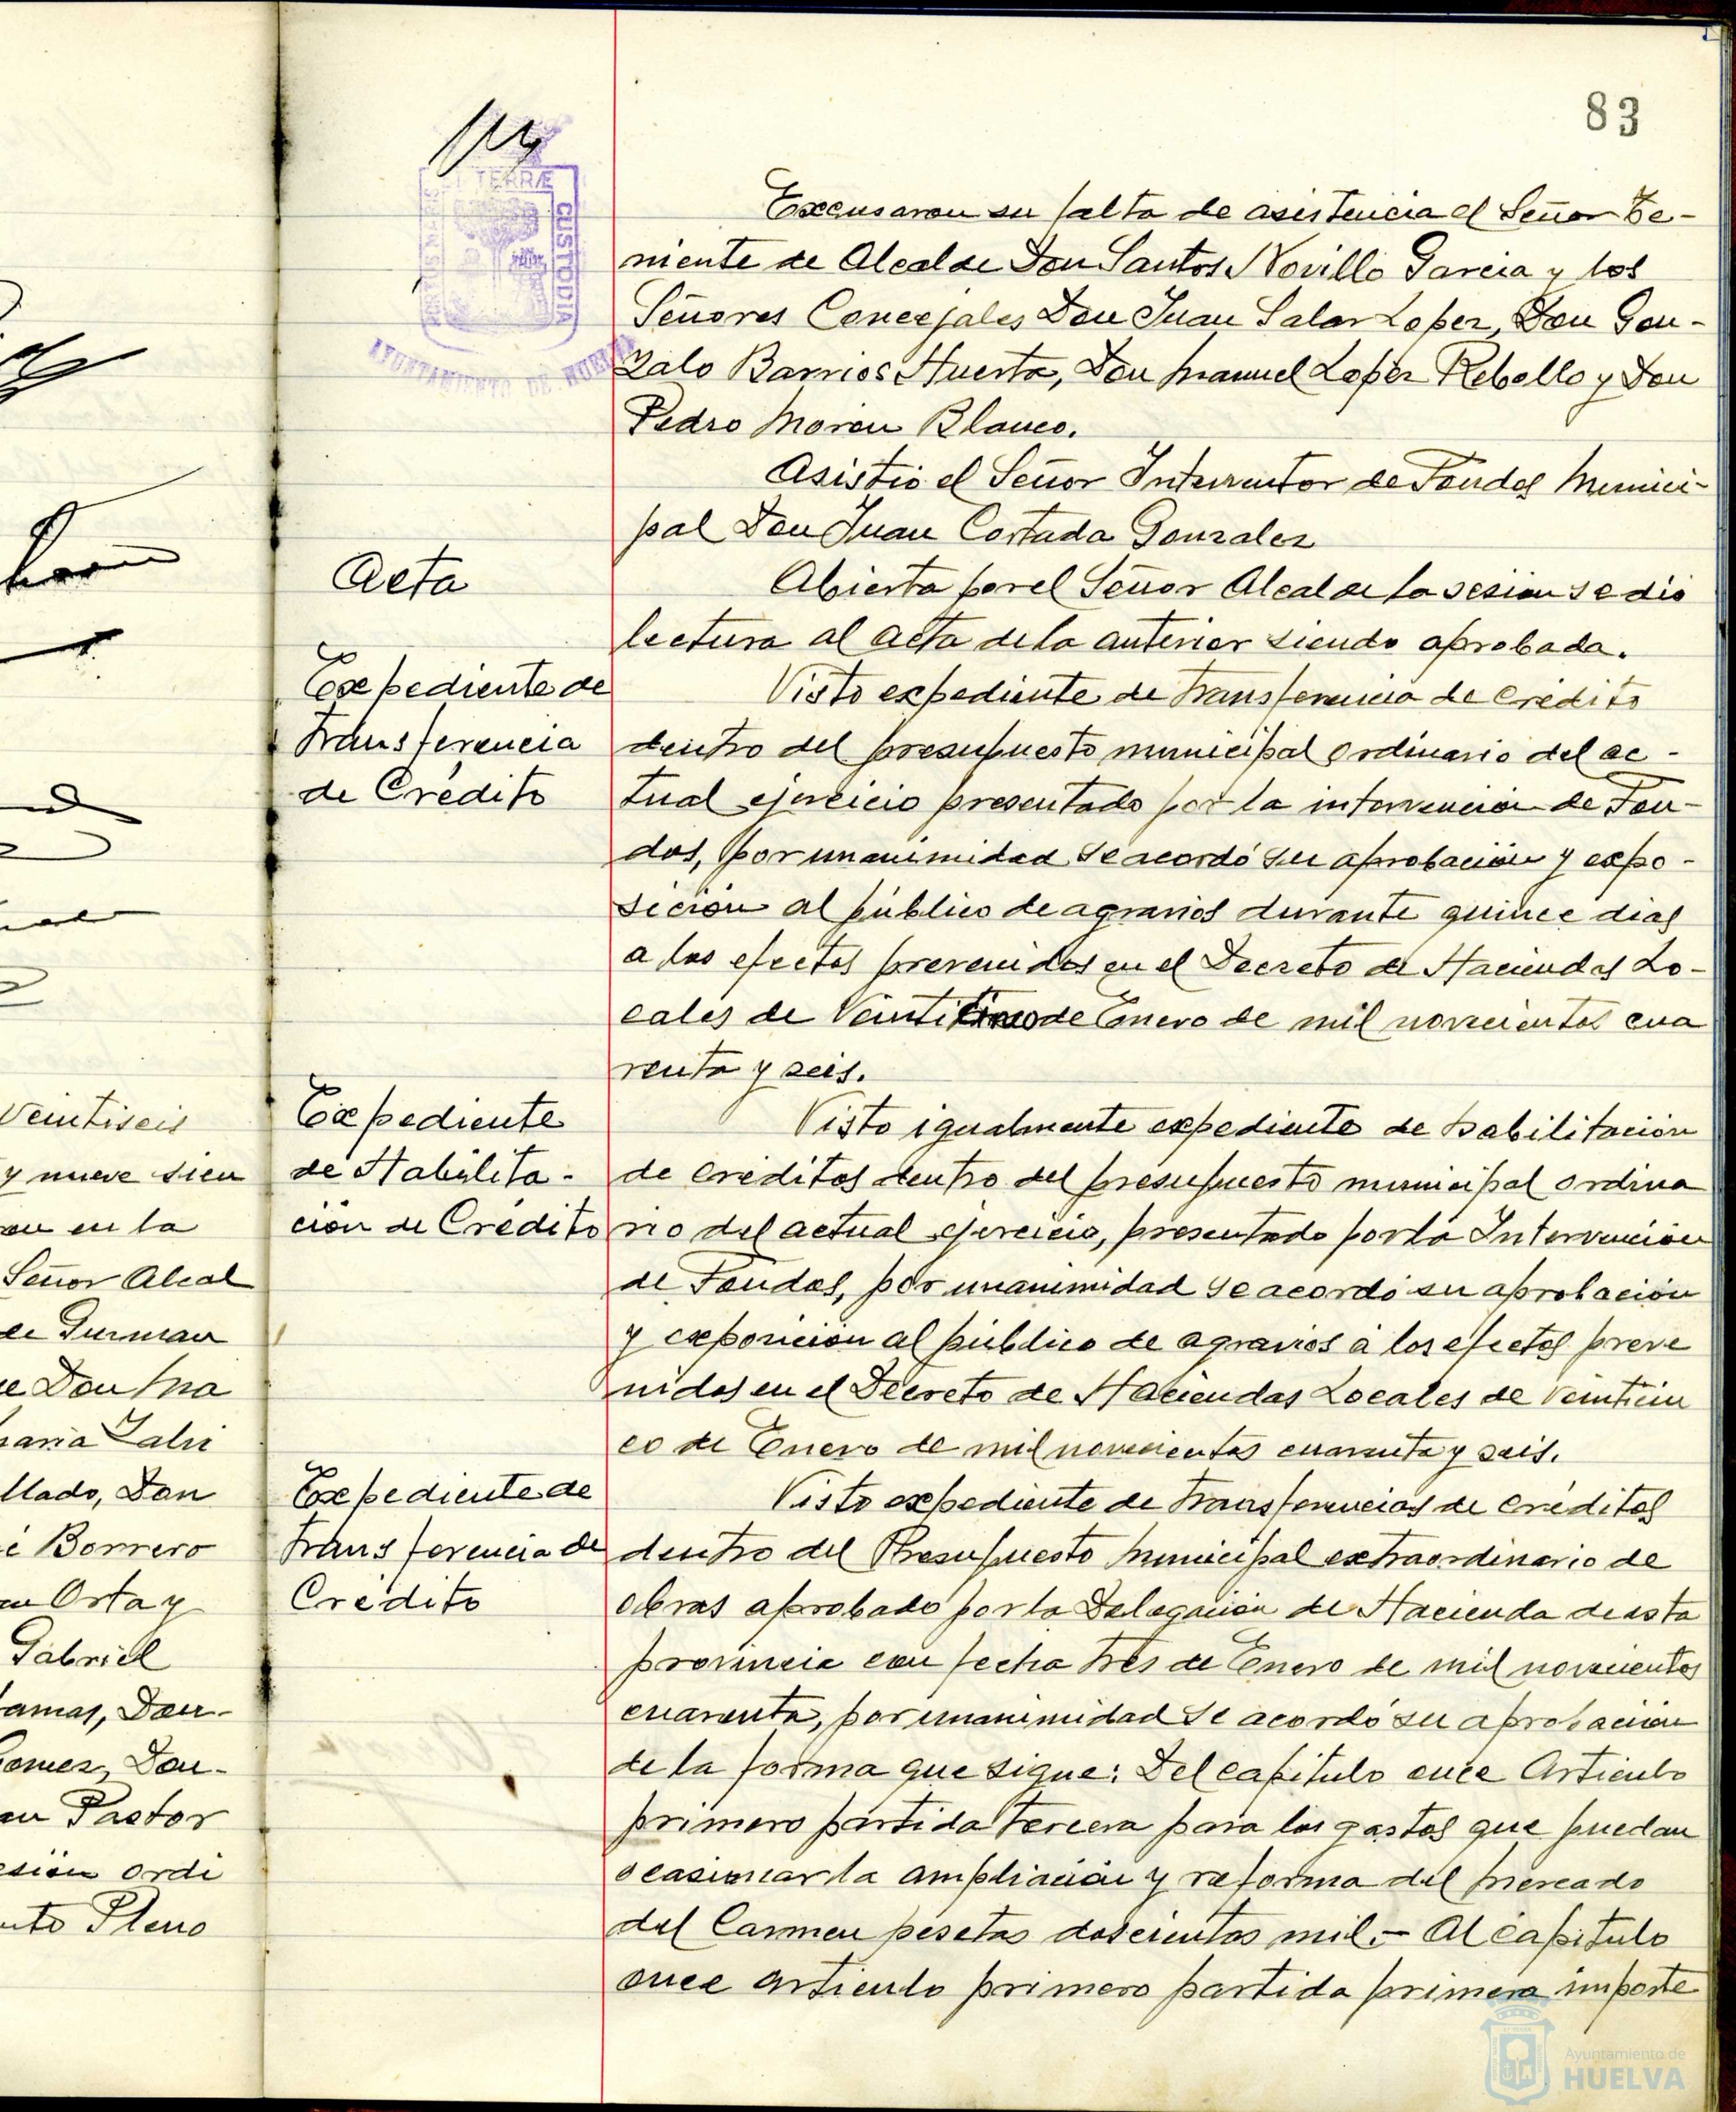 83
TERRÆ
CUSTODIA
AYUNTAMIENTO DE HUELVA
Excusaron su falta de asistencia el Señor Te-
niente de Alcalde Don Santos Novillo Garcia y los
Señores Concejales Don Juan Salas Lopez, Don Gon-
zalo Barrios Huerta, Don Manuel Lopez Rebollo y Don
Pedro Moron Blanco.
Asistió el Señor Interventor de Fondos Munici-
pal Don Juan Cortada Gonzalez
Acta
Abierta por el Señor Alcalde la sesion se dió
lectura al acta de la anterior siendo aprobada.
Expediente de
Transferencia
de Crédito
Visto expediente de Transferencia de Crédito
dentro del presupuesto municipal ordinario del ac-
tual ejercicio presentado por la intervención de Fon-
dos, por unanimidad se acordó su aprobación y expo-
sición al público de agravios durante quince dias
a los efectos prevenidos en el Decreto de Haciendas Lo-
cales de Veinticinco de Enero de mil novecientos cua
renta y seis.
Expediente
de Habilita-
ción de Crédito
Visto igualmente expediente de habilitación
de créditos dentro del presupuesto municipal ordina
rio del actual ejercicio, presentado por la Intervención
de Fondos, por unanimidad se acordó su aprobación
y exposición al público de agravios a los efectos preve
nidos en el Decreto de Haciendas Locales de veinticin
co de Enero de mil novecientos cuarenta y seis.
Expediente de
Transferencia de
Crédito
Visto expediente de Transferencias de créditos
dentro del Presupuesto Municipal extraordinario de
obras aprobado por la Delegación de Hacienda de esta
provincia con fecha tres de Enero de mil novecientos
cuarenta, por unanimidad se acordó su aprobación
de la forma que sigue: Del capítulo once Articulo
primero partida tercera para los gastos que puedan
ocasionar la ampliación y reforma del Mercado
del Carmen pesetas doscientas mil.- Al capítulo
once artículo primero partida primera importe
Veintiseis
y nueve sien
en la
Señor Alcal
de Guzman
Don Ma
llado, Don
Borrero
Orta y
Gabriel
amas, Don-
omez, Don-
Pastor
sión ordi
nto Pleno
Ayuntamiento de
HUELVA